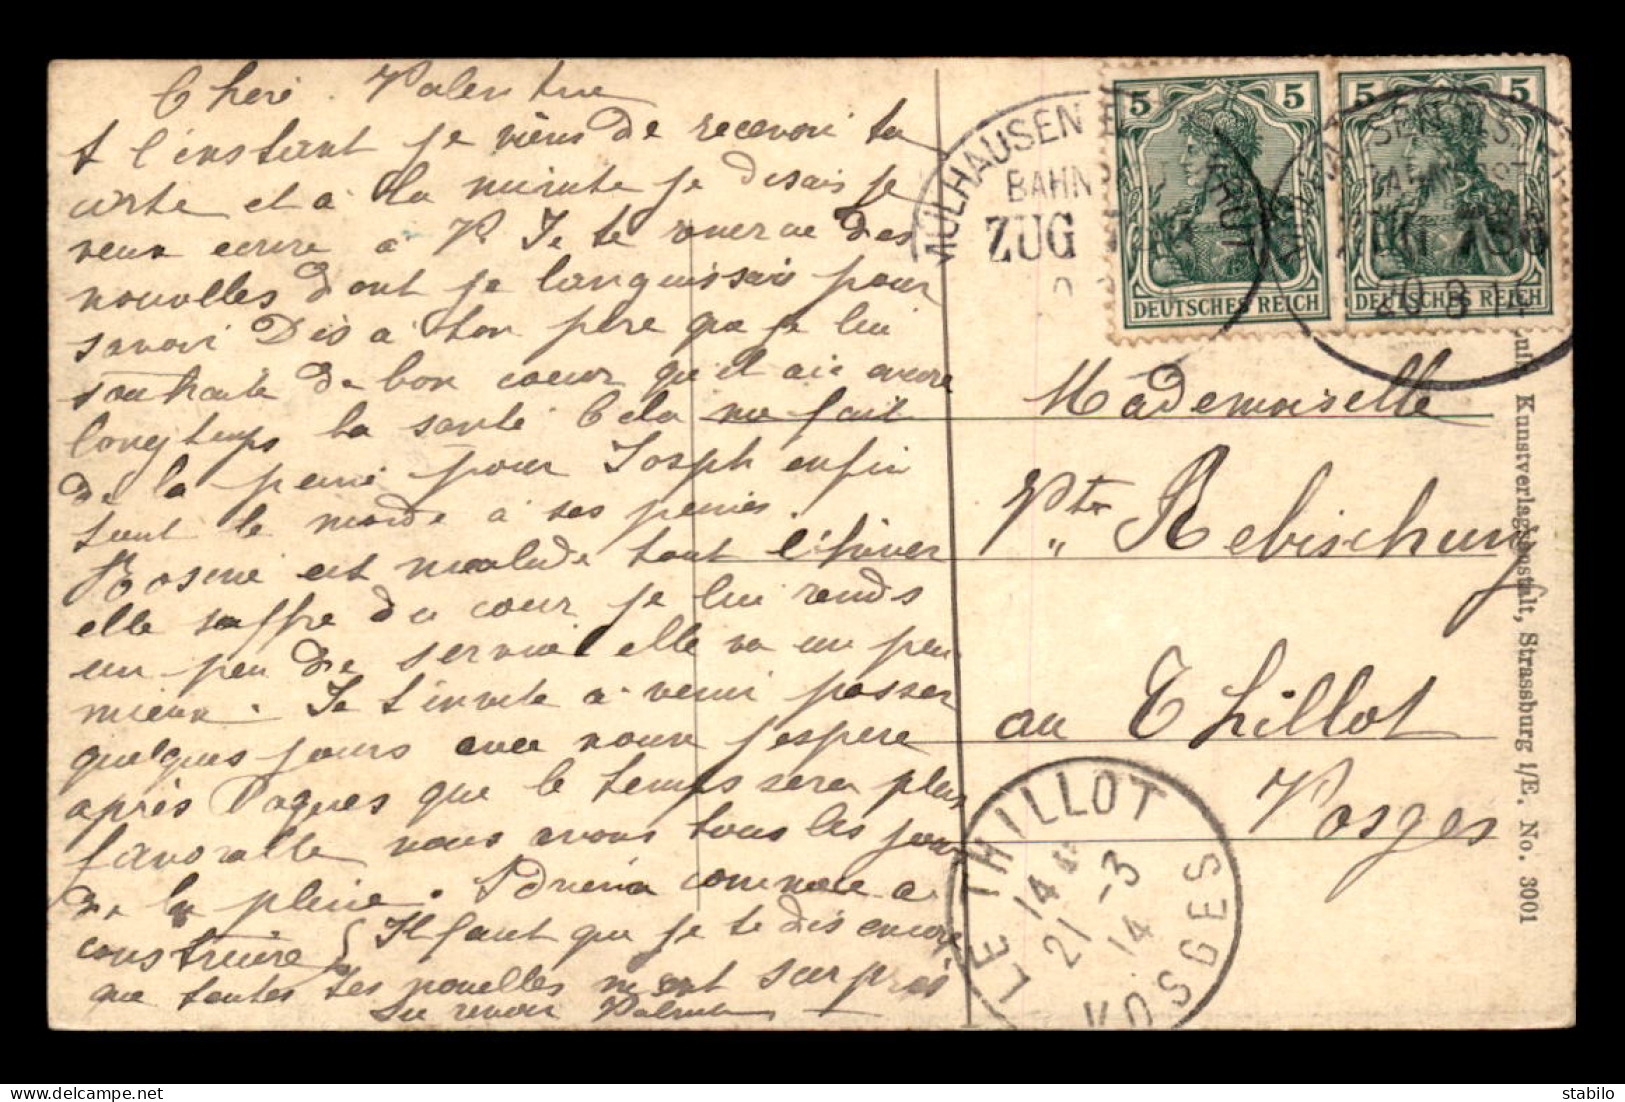 Cheri Valentine
A l'instant je viens de recevoir ta
carte et à la minute je disais je
veux ecrire à V. Je te remercie des
nouvelles dont je languissais pour
savoir Dis à ton pere que je lui
souhaite de bon coeur qu'il aie encore
longtemps la santé Cela me fait
de la peine pour Joseph enfin
tout le monde à ses peines.
Rosine est malade tout l'hiver
elle souffre du coeur je lui rends
un peu de service elle va un peu
mieux. Je t'invite à venir passer
quelques jours avec nous j'espere
après Paques que le temps sera plus
favorable nous avons tous les jours
de la pluie. Adrien commence à
construire Il faut que je te dis encore
que toutes tes nouvelles m'ont surpris
Au revoir Valentine
MÜLHAUSEN
BAHNPOST
ZUG
5 5
DEUTSCHES REICH
5 5
DEUTSCHES REICH
Mademoiselle
Vte Rebischung
au Thillot
Vosges
LE THILLOT
14
21 -3
14
VOSGES
Kunstverlagsanstalt, Strassburg i/E. No. 3001
stabilo